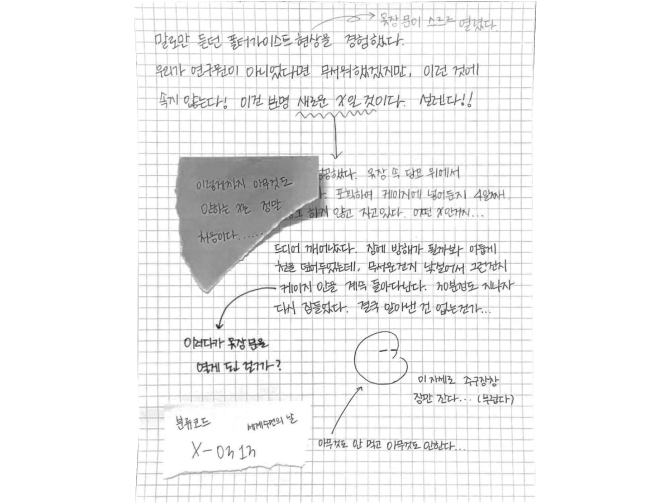 옷장 문이 스르르 열렸다.
말로만 듣던 폴터가이스트 현상을 경험했다.
우리가 연구원이 아니었다면 무서워했겠지만, 이런 것에
속지 않는다! 이건 분명 새로운 X일 것이다. 설렌다!!
했다. 옷장 속 담요 위에서
포획하여 케이지에 넣어둔지 4일째.
하지 않고 자고있다. 어떤 X인거지...
이렇게까지 아무것도
안하는 X는 정말
처음이다......
드디어 깨어났다. 잠에 방해가 될까봐 어둡게
천을 덮어두었는데, 무서운건지 낯설어서 그런건지
케이지 안을 계속 돌아다닌다. 30분정도 지나자
다시 잠들었다. 결국 알아낸 건 없는건가...
이러다가 옷장 문을
열게 된 걸까?
이 자세로 주구장창
잠만 잔다... (부럽다)
분류코드
세계수면의 날
X-0313
아무것도 안 먹고 아무것도 안한다...